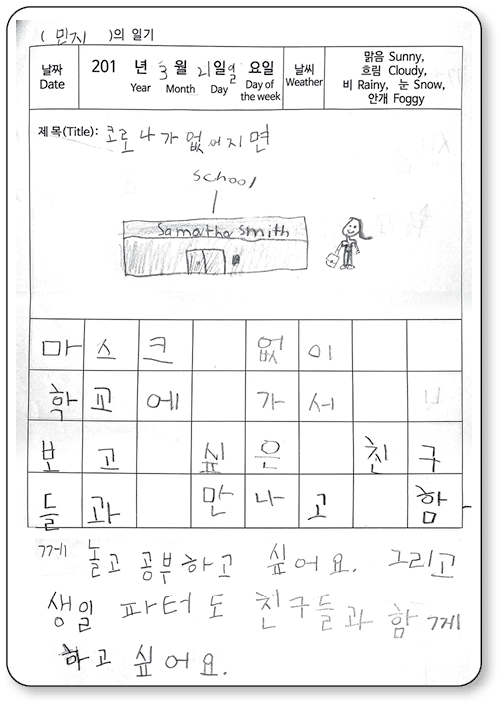 ( 민지 )의 일기
날짜 Date 201 년 Year 3 월 Month 21 일 Day 일 요일 Day of the week 날씨 Weather 맑음 Sunny, 흐림 Cloudy, 비 Rainy, 눈 Snow, 안개 Foggy
제목(Title): 코로나가 없어지면
school
Samatha Smith
마스크 없이
학교에 가서
보고 싶은 친구
들과 만나고 함
께 놀고 공부하고 싶어요. 그리고
생일 파터도 친구들과 함께
하고 싶어요.